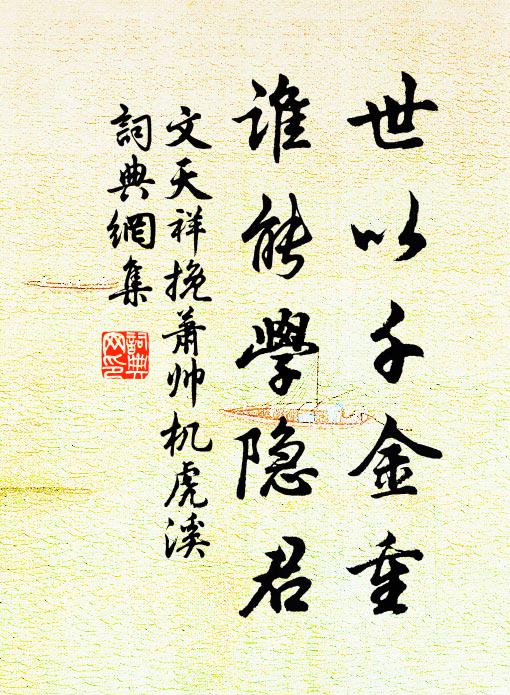 世以千金重
谁能學隐君
文天祥挽萧帅机虎溪
詞典網集
詞典
网印